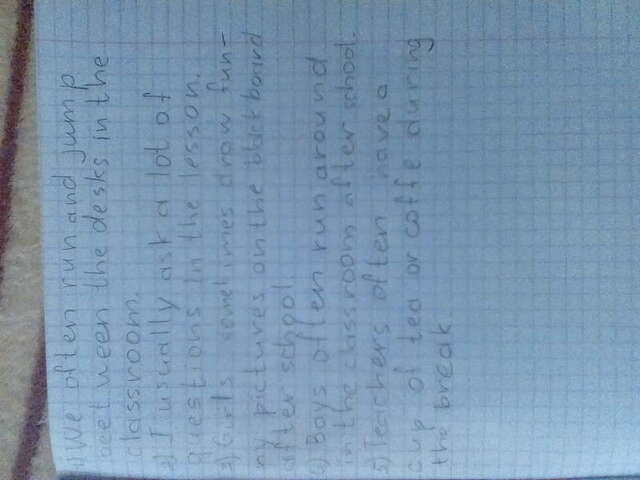 1) We often run and jump
beetween the desks in the
classroom.
2) I usually ask a lot of
questions in the lesson.
3) Girls sometimes draw fun-
ny pictures on the blackboard
after school.
4) Boys often run around
in the classroom after shool.
5) Teachers often have a
cup of tea or coffe during
the break.